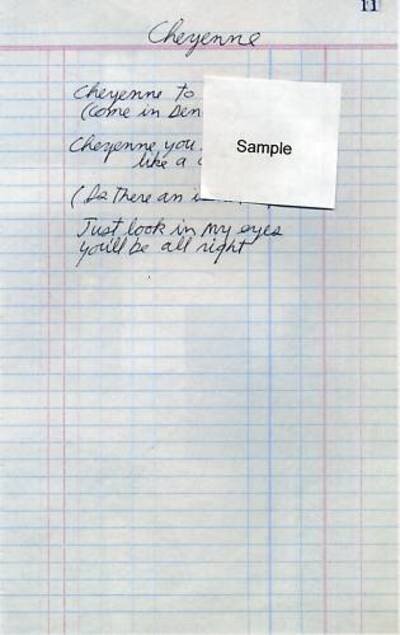 11
Cheyenne
Cheyenne to
(Come in Den
Cheyenne you
like a
Sample
(Is there an
Just look in my eyes
you'll be all right